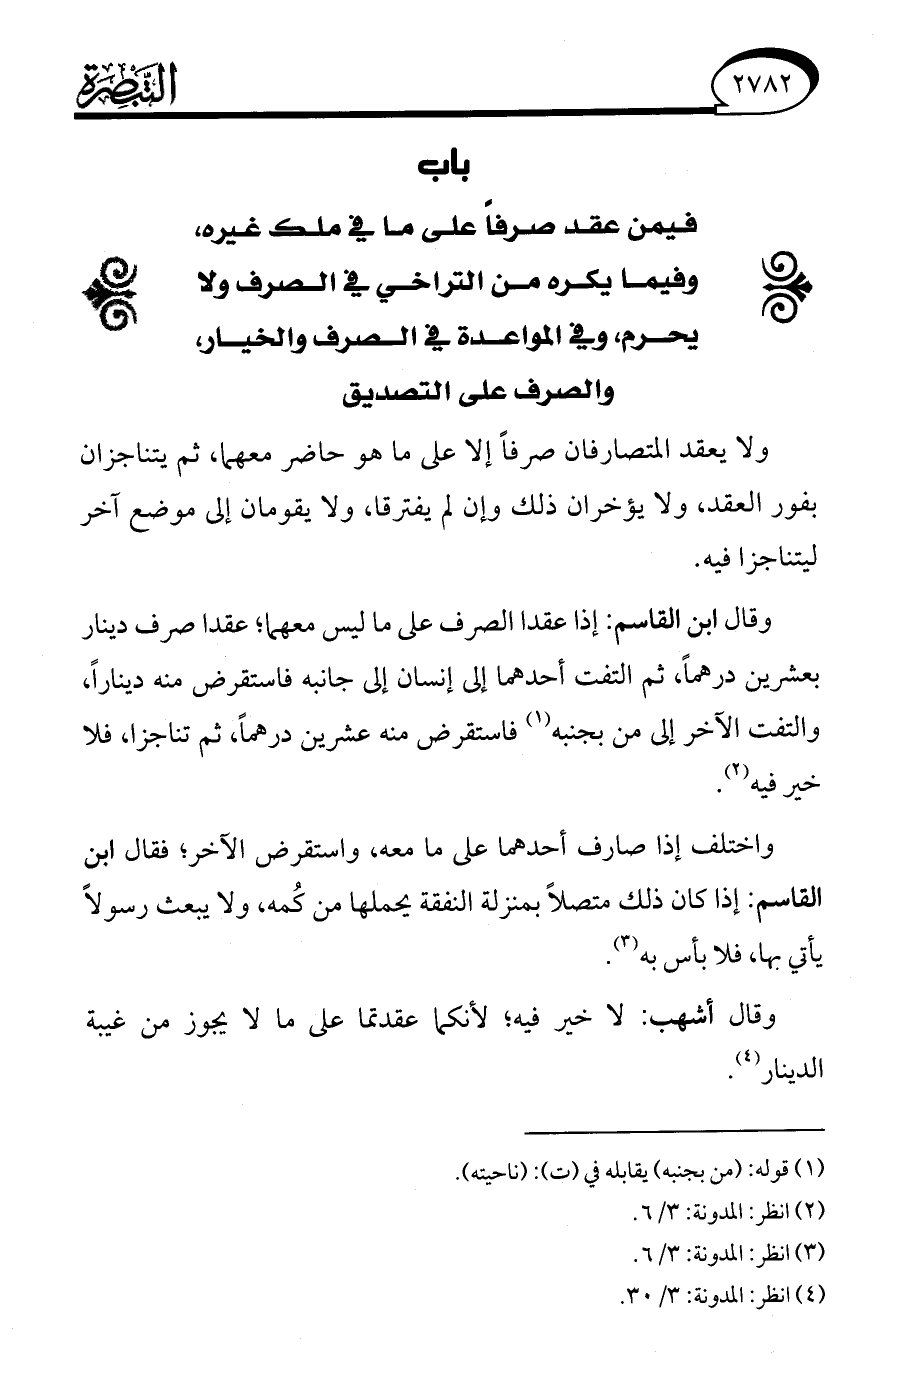 التبصرة
٢٧٨٢
باب
فيمن عقد صرفاً على ما في ملك غيره،
وفيما يكره من التراخي في الصرف ولا
يحرم، وفي المواعدة في الصرف والخيار،
والصرف على التصديق
ولا يعقد المتصارفان صرفاً إلا على ما هو حاضر معهما، ثم يتناجزان
بفور العقد، ولا يؤخران ذلك وإن لم يفترقا، ولا يقومان إلى موضع آخر
ليتناجزا فيه.
وقال ابن القاسم: إذا عقدا الصرف على ما ليس معهما؛ عقدا صرف دينار
بعشرين درهماً، ثم التفت أحدهما إلى إنسان إلى جانبه فاستقرض منه ديناراً،
والتفت الآخر إلى من بجنبه(١) فاستقرض منه عشرين درهماً، ثم تناجزا، فلا
خير فيه(٢).
واختلف إذا صارف أحدهما على ما معه، واستقرض الآخر؛ فقال ابن
القاسم: إذا كان ذلك متصلاً بمنزلة النفقة يحملها من كُمه، ولا يبعث رسولاً
يأتي بها، فلا بأس به(٣).
وقال أشهب: لا خير فيه؛ لأنكما عقدتما على ما لا يجوز من غيبة
الدينار(٤).
(١) قوله: (من بجنبه) يقابله في (ت): (ناحيته).
(٢) انظر: المدونة: ٣/ ٦.
(٣) انظر: المدونة: ٣/ ٦.
(٤) انظر: المدونة: ٣/ ٣٠.